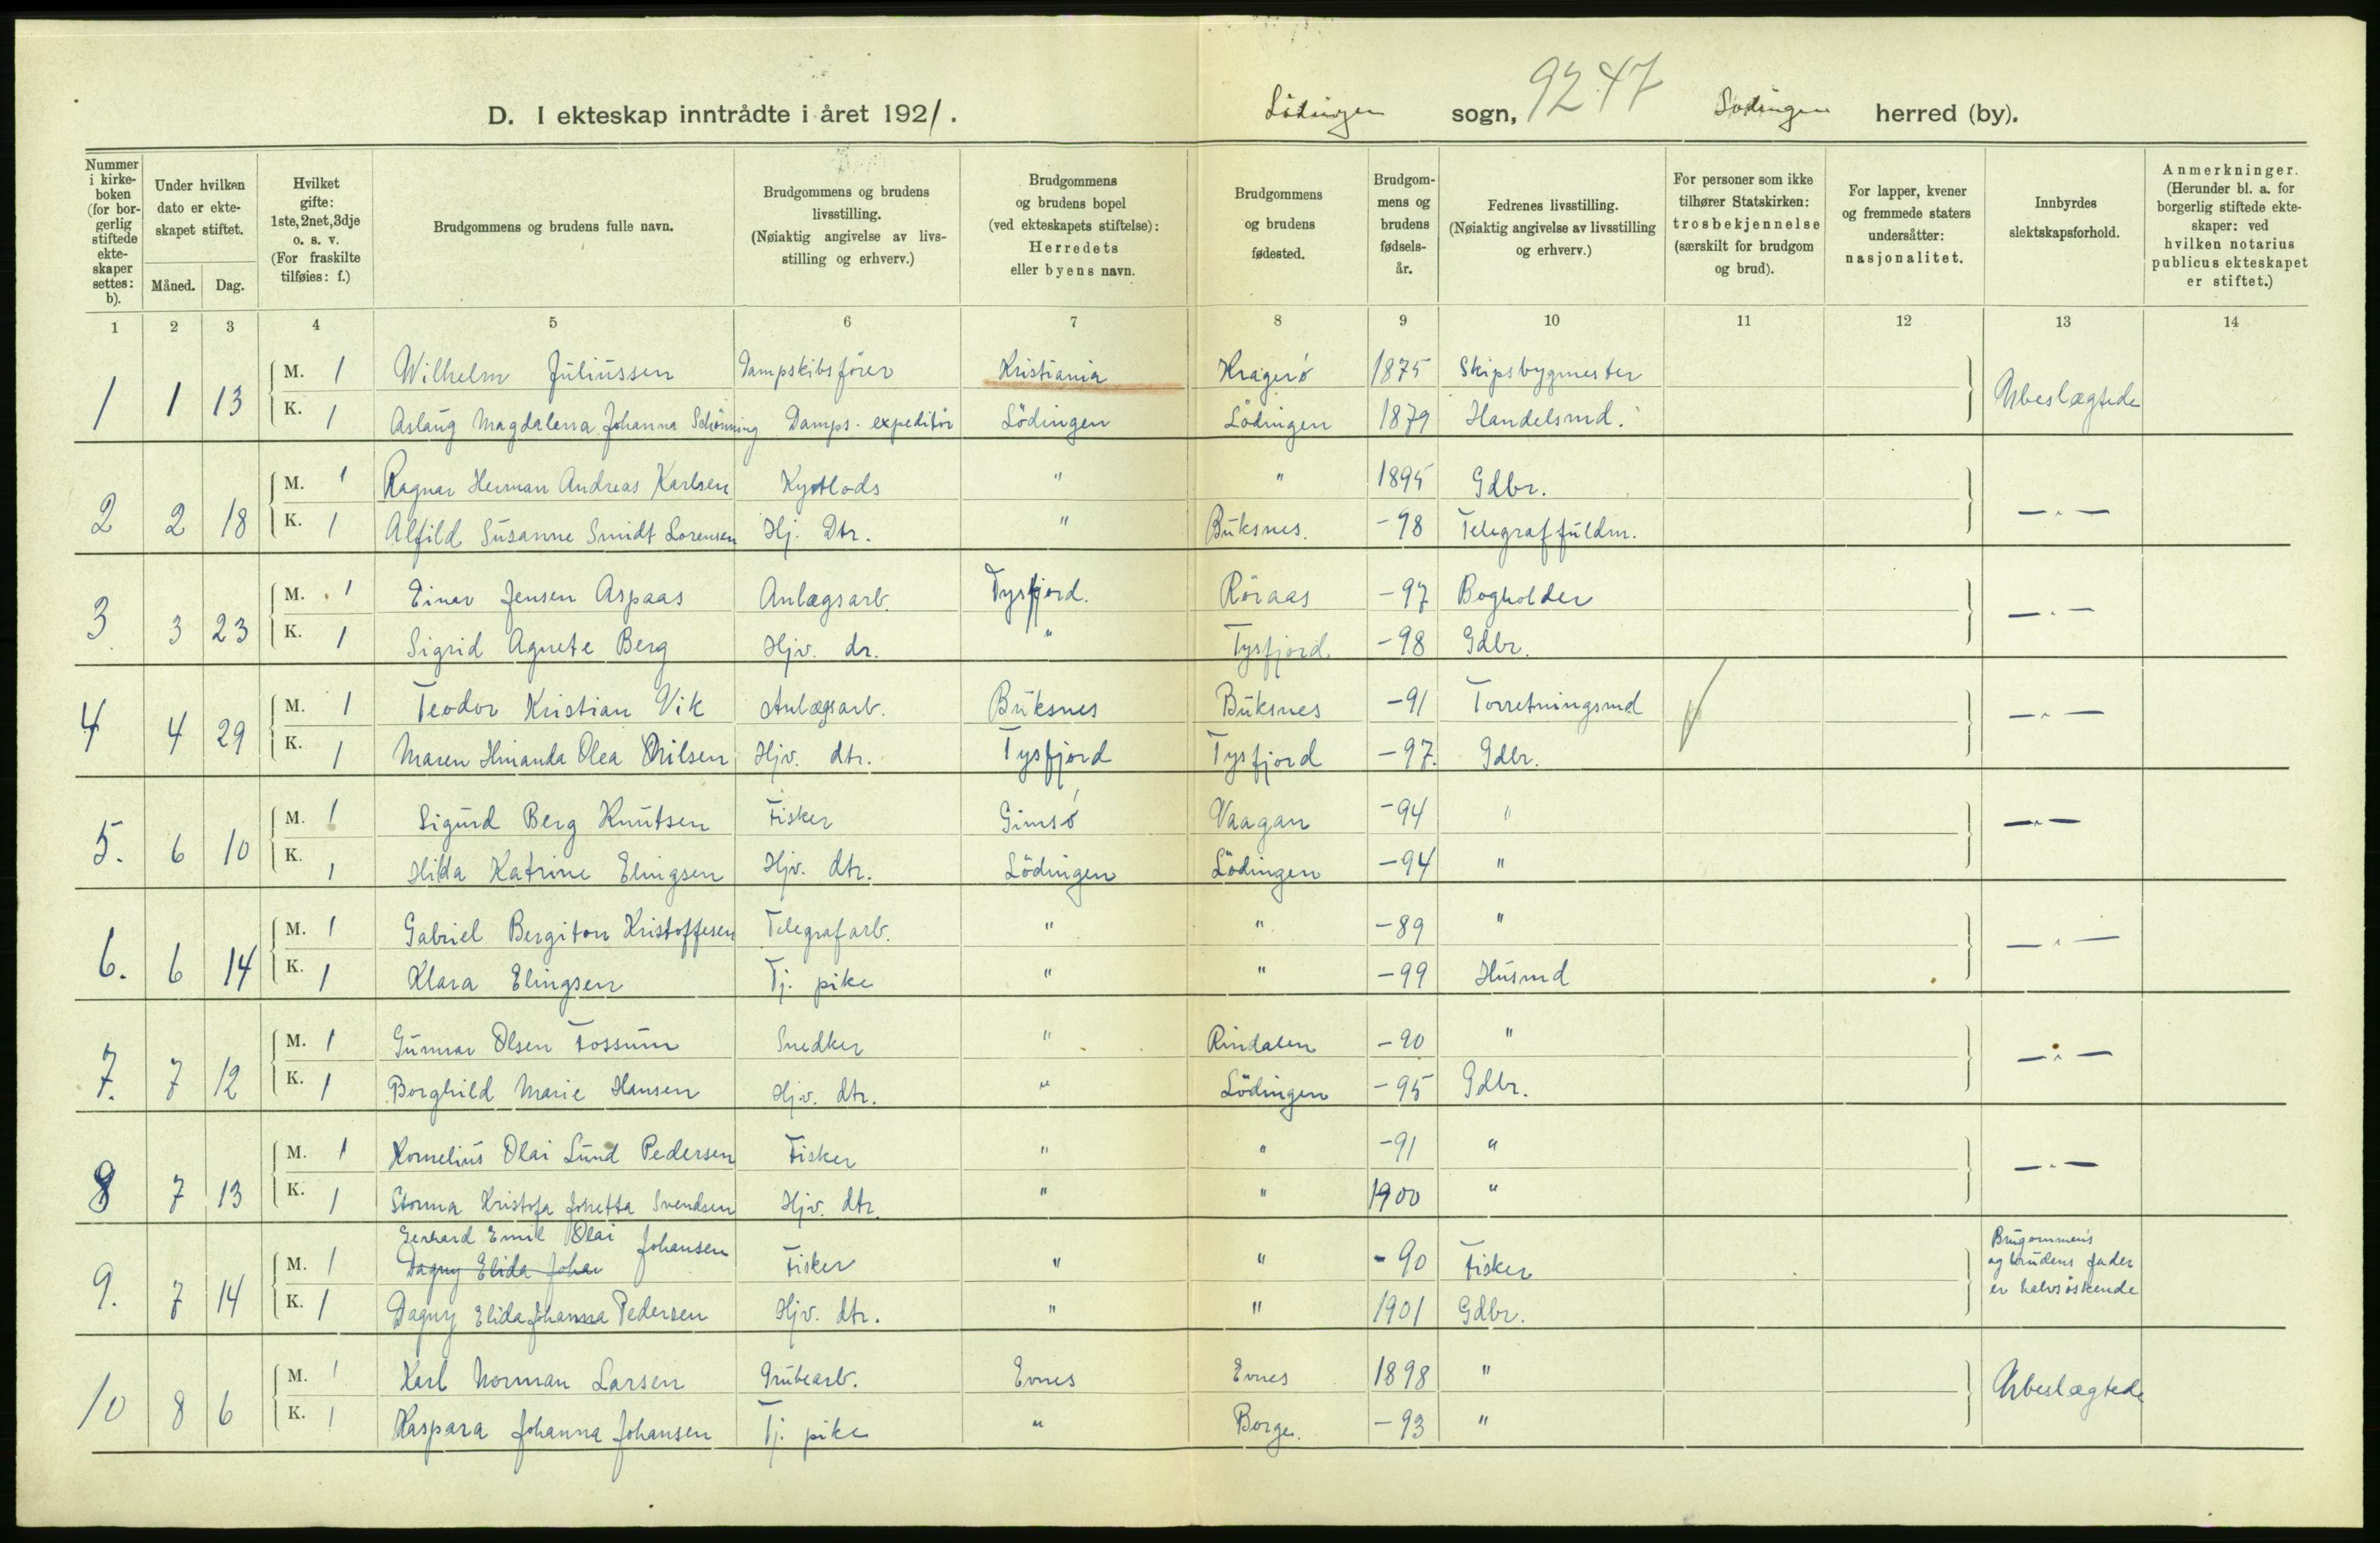 D. I ekteskap inntrådte i året 1921.
Lödingen sogn, 9247 Lödingen herred (by).
Nummer i kirke-boken (for bor-gerlig stiftede ekte-skaper settes: b).
Under hvilken dato er ekte-skapet stiftet.
Måned. Dag.
Hvilket gifte: 1ste, 2net, 3dje o. s. v. (For fraskilte tilføies: f.)
Brudgommens og brudens fulle navn.
Brudgommens og brudens livsstilling. (Nøiaktig angivelse av livs-stilling og erhverv.)
Brudgommens og brudens bopel (ved ekteskapets stiftelse): Herredets eller byens navn.
Brudgommens og brudens fødested.
Brudgom-mens og brudens fødsels-år.
Fedrenes livsstilling. (Nøiaktig angivelse av livsstilling og erhverv.)
For personer som ikke tilhører Statskirken: trosbekjennelse (særskilt for brudgom og brud).
For lapper, kvener og fremmede staters undersåtter: nasjonalitet.
Innbyrdes slektskapsforhold.
Anmerkninger. (Herunder bl. a. for borgerlig stiftede ekte-skaper: ved hvilken notarius publicus ekteskapet er stiftet.)
1 2 3 4 5 6 7 8 9 10 11 12 13 14
1 1 13 M. 1 Wilhelm Juliussen Dampskibsförer Kristiania Kragerö 1875 Skipsbygmester Ubeslægtede
K. 1 Aslaug Magdalena Johanna Schönning Damps. expeditör Lödingen Lödingen 1879 Handelsmd.
2 2 18 M. 1 Ragnar Herman Andreas Karlsen Kystlods " " 1895 Gdbr. — " —
K. 1 Alfild Susanne Smidt Lorensen Hj. Dtr. " Buksnes. -98 Telegraffuldm.
3 3 23 M. 1 Einar Jensen Aspaas Anlægsarb. Tysfjord. Röraas -97 Bogholder — " —
K. 1 Sigrid Agnete Berg Hjv. dr. " Tysfjord -98 Gdbr.
4 4 29 M. 1 Teodor Kristian Vik Anlægsarb. Buksnes Buksnes -91 Forretningsmd — " —
K. 1 Maren Hmanda Olea Nilsen Hjv. dtr. Tysfjord Tysfjord -97. Gdbr.
5. 6 10 M. 1 Sigurd Berg Knutsen Fisker Gimsö Vaagan -94 " — " —
K. 1 Hilda Katrine Elingsen Hjv. dtr. Lödingen Lödingen -94 "
6. 6 14 M. 1 Gabriel Bergiton Kristoffesen Telegrafarb. " " -89 " — " —
K. 1 Klara Elingsen Tj. pike " " -99 Husmd
7. 7 12 M. 1 Gunnar Olsen Fossum Snedker " Rindalen -90 " — " —
K. 1 Borghild Marie Hansen Hjv. dtr. " Lödingen -95 Gdbr.
8 7 13 M. 1 Kornelius Olai Lund Pedersen Fisker " " -91 " — " —
K. 1 Storma Kristofa Jonetta Svendsen Hjv. dtr. " " 1900 "
Gerhard Emil Olai Johansen
9. 7 14 M. 1 Dagny Elida Johan Fisker " " -90 Fisker Brugommens og brudens fader er halvsöskende
K. 1 Dagny Elida Johanna Pedersen Hjv. dtr. " " 1901 Gdbr.
10 8 6 M. 1 Karl Norman Larsen Grubearb. Evnes Evnes 1898 " Ubeslægtede
K. 1 Kaspara Johanna Johansen Tj. pike " Borge. -93 "